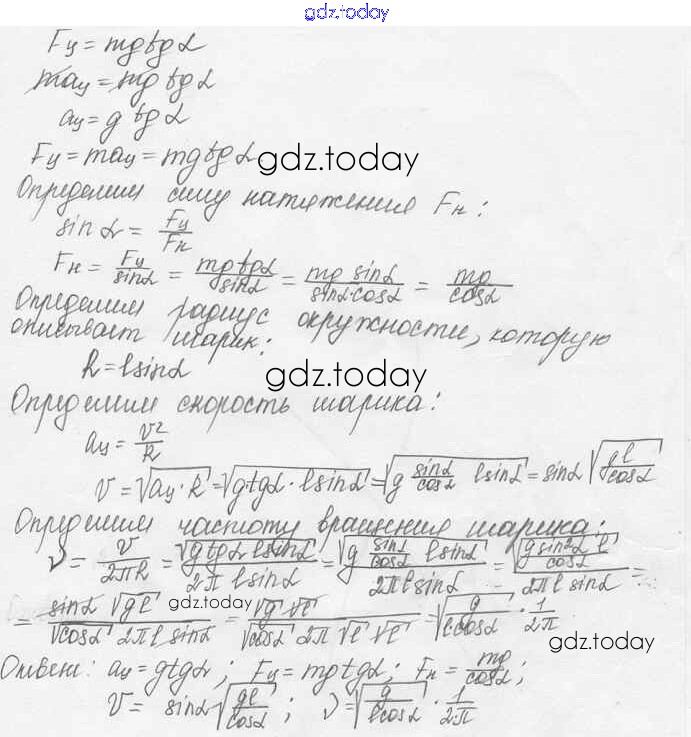 gdz.today
Fц = mg tg α
maц = mg tg α
aц = g tg α
Fц = maц = mg tg α gdz.today
Определим силу натяжения Fн:
sin α = Fц/Fн
Fн = Fц/sin α = mg tg α/sin α = mg sin α/sin α·cos α = mg/cos α
Определим радиус окружности, которую
описывает шарик:
R = l sin α
gdz.today
Определим скорость шарика:
aц = v²/R
v = √(aц·R) = √(g tg α · l sin α) = √(g sin α/cos α l sin α) = sin α √(gl/cos α)
Определим частоту вращения шарика:
ν = v/2πR = √(g tg α l sin α)/2π l sin α = √(g sin α/cos α l sin α)/2π l sin α = √(g sin²α l/cos α)/2π l sin α =
= sin α √gl/√cos α 2π l sin α = √g √l/√cos α 2π √l √l = √(g/l cos α) · 1/2π.
gdz.today
gdz.today
Ответ: aц = g tg α; Fц = mg tg α; Fн = mg/cos α;
v = sin α √(gl/cos α); ν = √(g/l cos α) · 1/2π